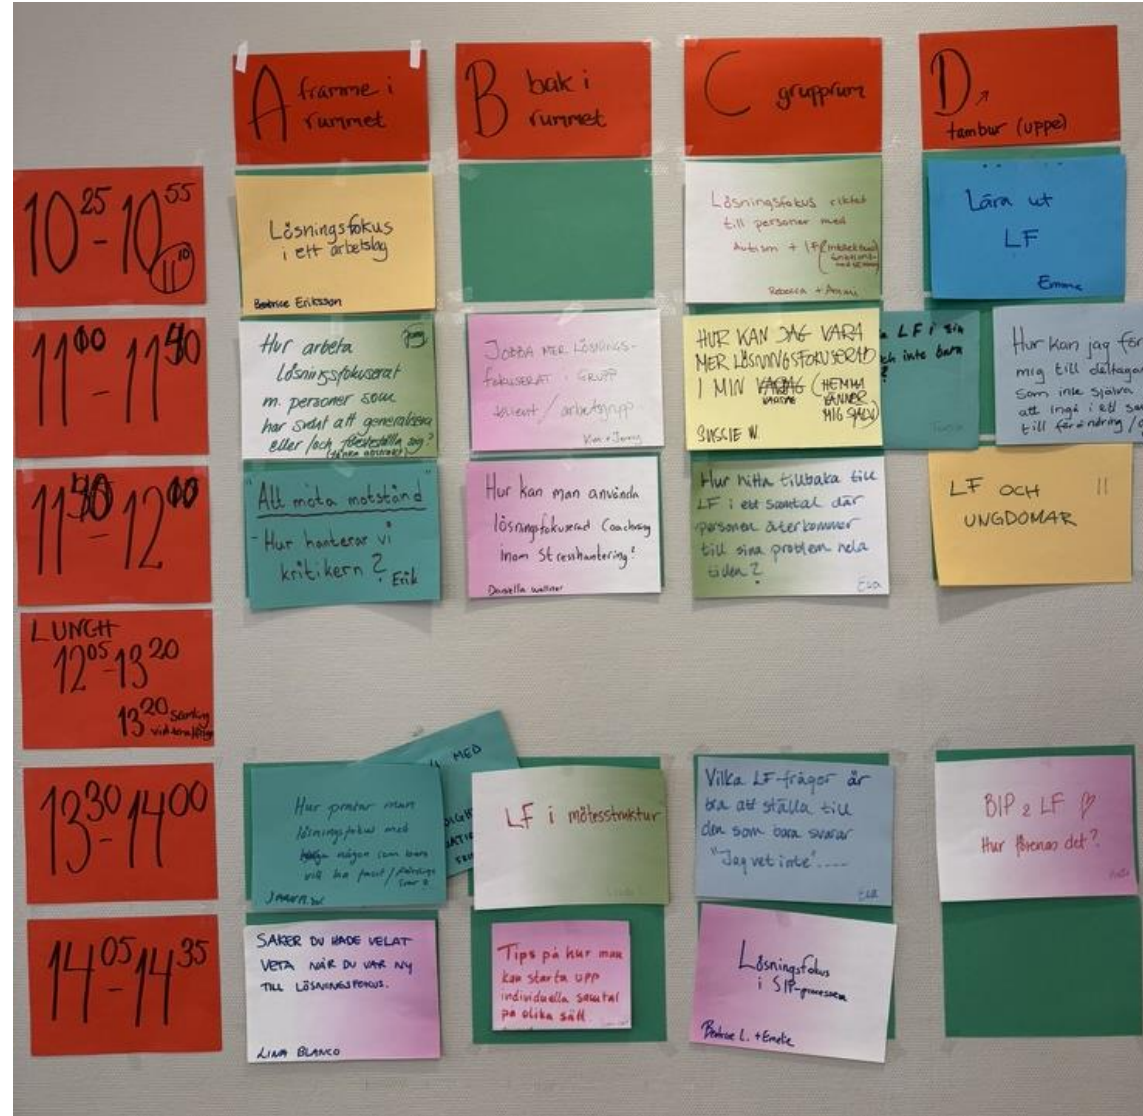 A framme i
rummet
B bak i
rummet
C grupprum
D
tambur (uppe)
10 25 - 10 55
11 10
Lösningsfokus
i ett arbetslag
Beatrice Eriksson
Lösningsfokus riktat
till personer med
Autism + IF (intellektuell
Rebecca +
Lära ut
LF
Emma
11 00 - 11 30
Hur arbeta
lösningsfokuserat
m. personer som
har svårt att generalisera
eller/och föreställa sig?
(tänka abstrakt)
JOBBA MER LÖSNINGS-
FOKUSERAT I GRUPP
/ arbetsgrupp
+ Jenny
HUR KAN JAG VARA
MER LÖSNINGSFOKUSERAD
I MIN VARDAG (HEMMA
VÄNNER
MIG SJÄLV)
SUSSIE W.
LF i sin
och inte bara
?
Hur kan jag för
mig till deltagar
som inte själva
att ingå i ett sa
till förändring /
11 30 - 12 00
"Att möta motstånd"
- Hur hanterar vi
kritikern?
Erik
Hur kan man använda
lösningsfokuserad Coaching
inom Stresshantering?
Daniella Wallner
Hur hitta tillbaka till
LF i ett samtal där
personen återkommer
till sina problem hela
tiden?
Eva
LF OCH !!
UNGDOMAR
LUNCH
12 05 - 13 20
13 20 Samling
13 30 - 14 00
MED
Hur pratar man
lösningsfokus med
någon som bara
vill ha facit /
svar?
LF i mötesstruktur
Vilka LF-frågor är
bra att ställa till
den som bara svarar
"Jag vet inte"....
Eva
BIP & LF
Hur förenas det?
14 05 - 14 35
SAKER DU HADE VELAT
VETA NÄR DU VAR NY
TILL LÖSNINGSFOKUS.
LINA BLANCO
Tips på hur man
kan starta upp
individuella samtal
på olika sätt
Lösningsfokus
i SIP-processen
Beatrice L. + Emelie